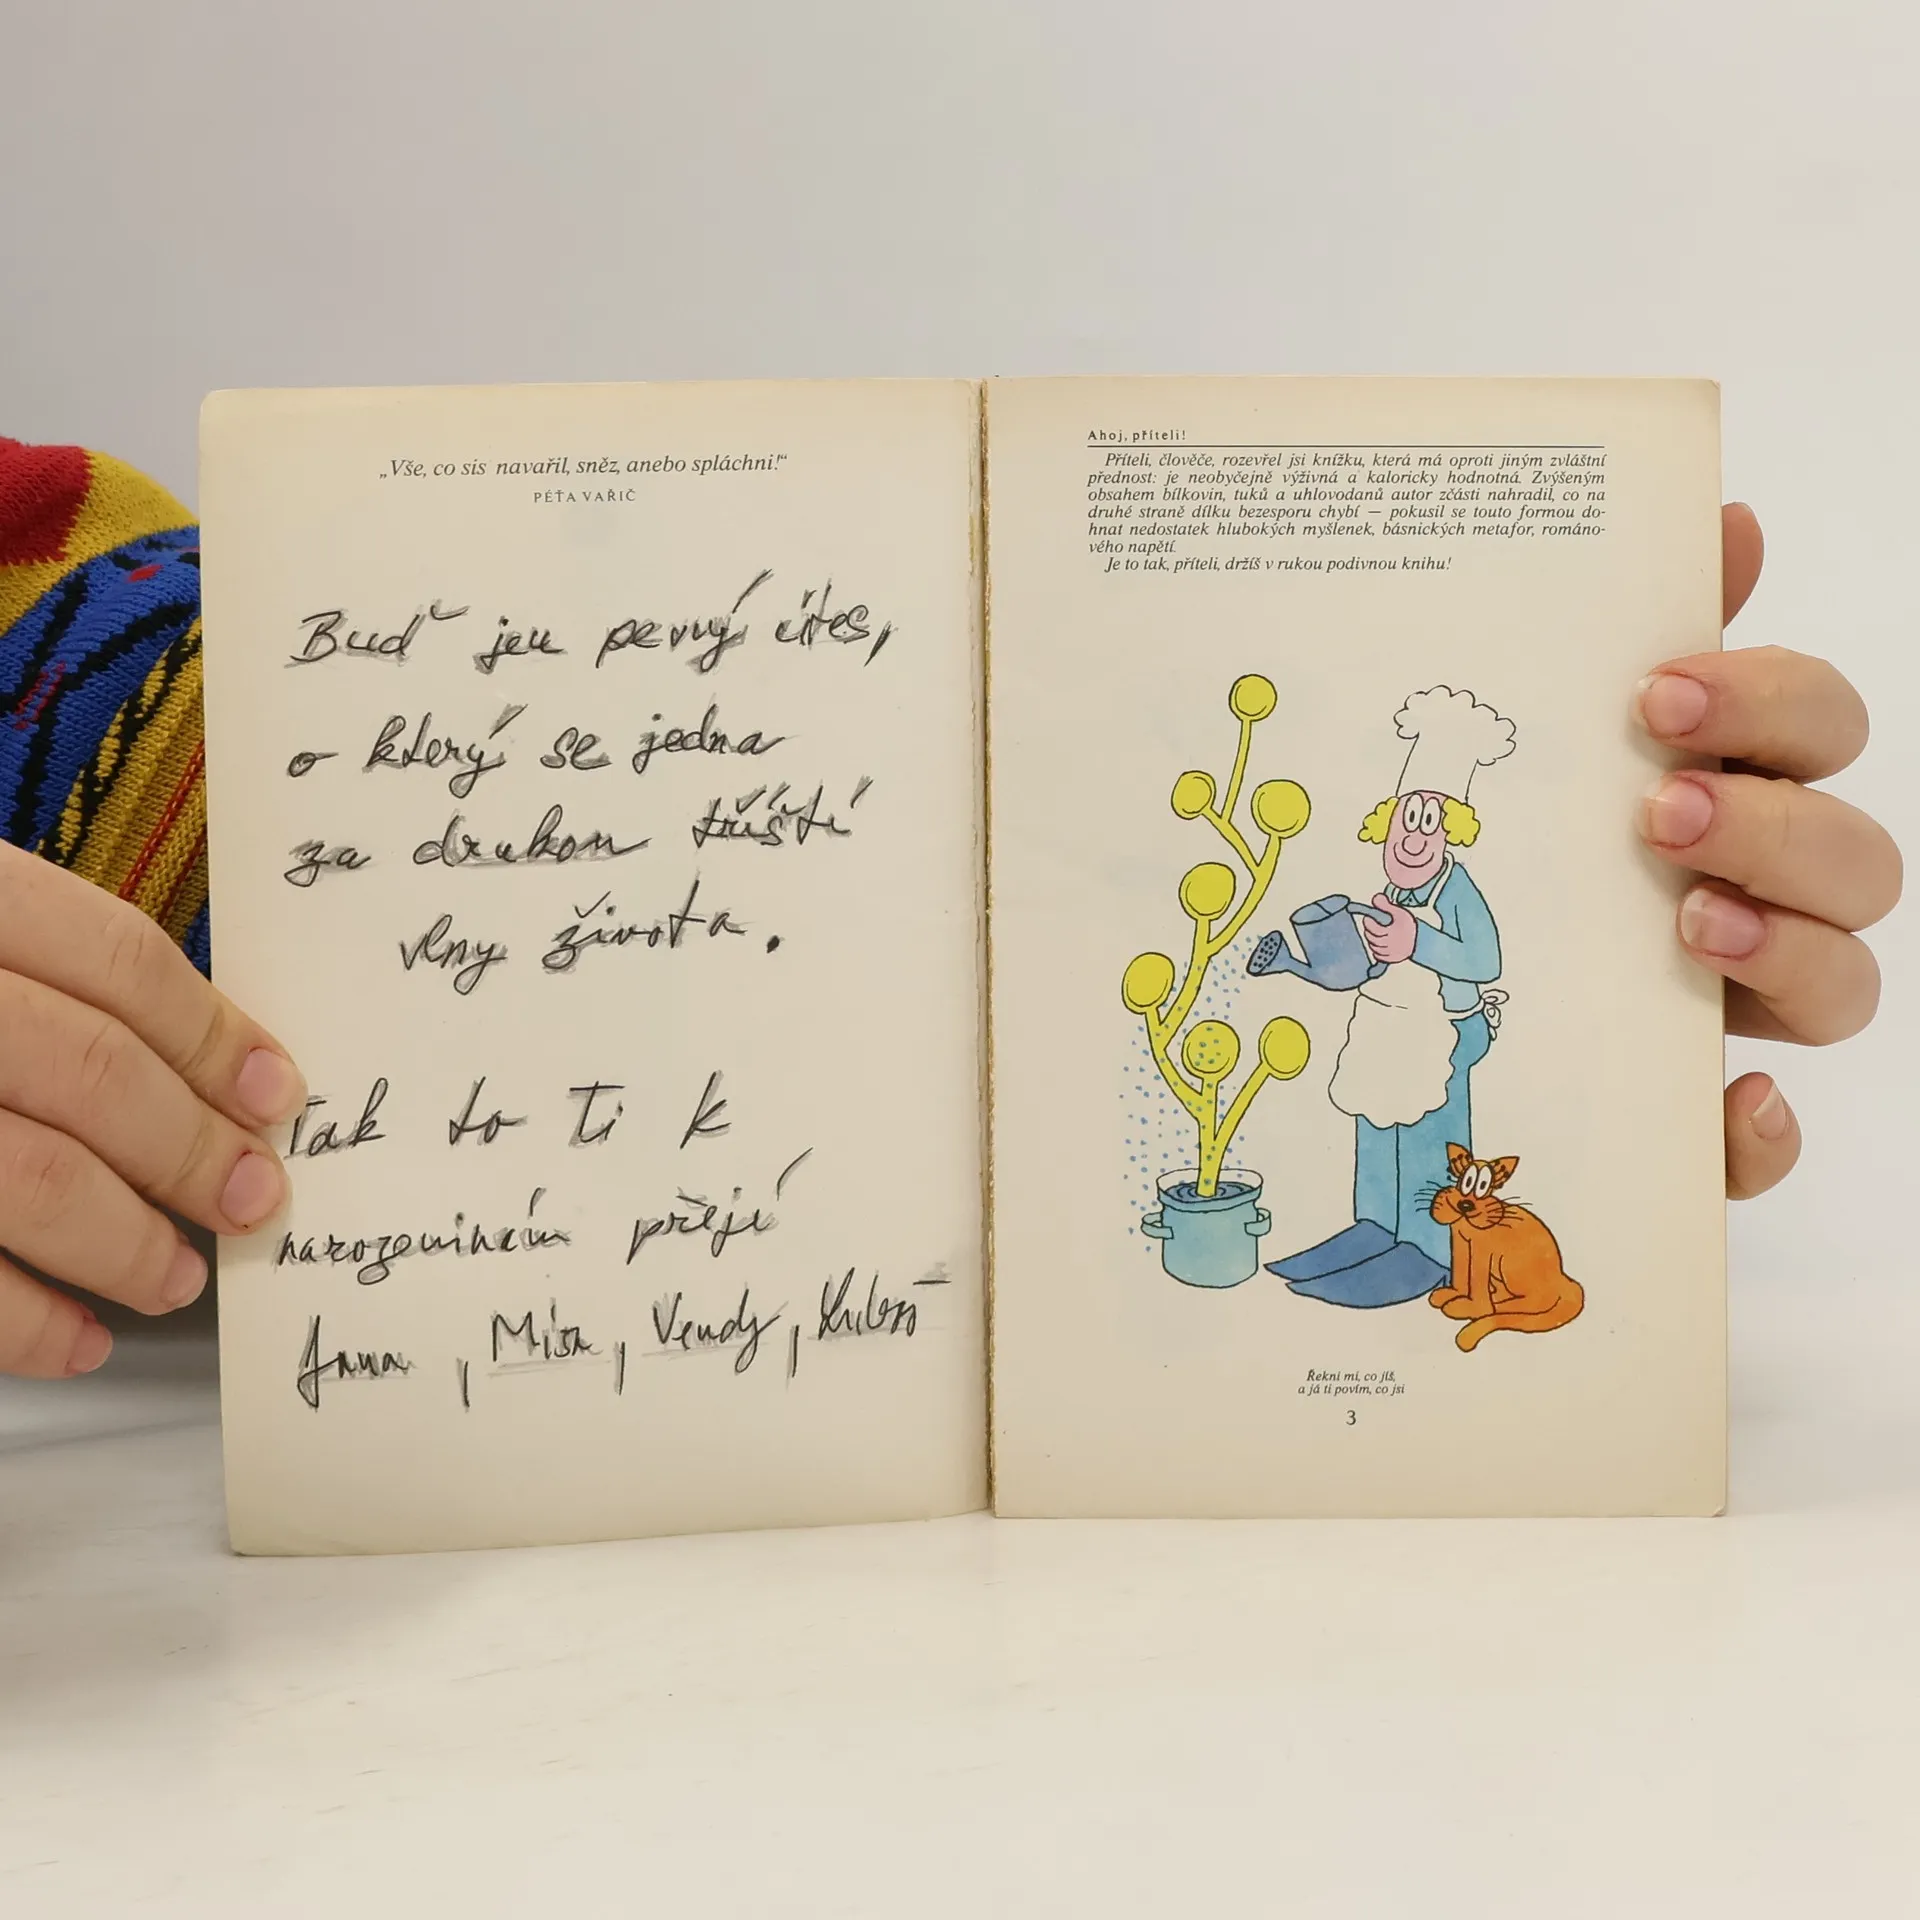 „Vše, co sis navařil, sněz, anebo spláchni!“
PÉŤA VAŘIČ
Buď jen pevný útes,
o který se jedna
za druhou tříští
vlny života.
Tak to Ti k
narozeninám přejí
Jana, Míša, Vendy, Luboš
Ahoj, příteli!
Příteli, člověče, rozevřel jsi knížku, která má oproti jiným zvláštní
přednost: je neobyčejně výživná a kaloricky hodnotná. Zvýšeným
obsahem bílkovin, tuků a uhlovodanů autor zčásti nahradil, co na
druhé straně dílku bezesporu chybí — pokusil se touto formou do-
hnat nedostatek hlubokých myšlenek, básnických metafor, románo-
vého napětí.
Je to tak, příteli, držíš v rukou podivnou knihu!
Řekni mi, co jíš,
a já ti povím, co jsi
3